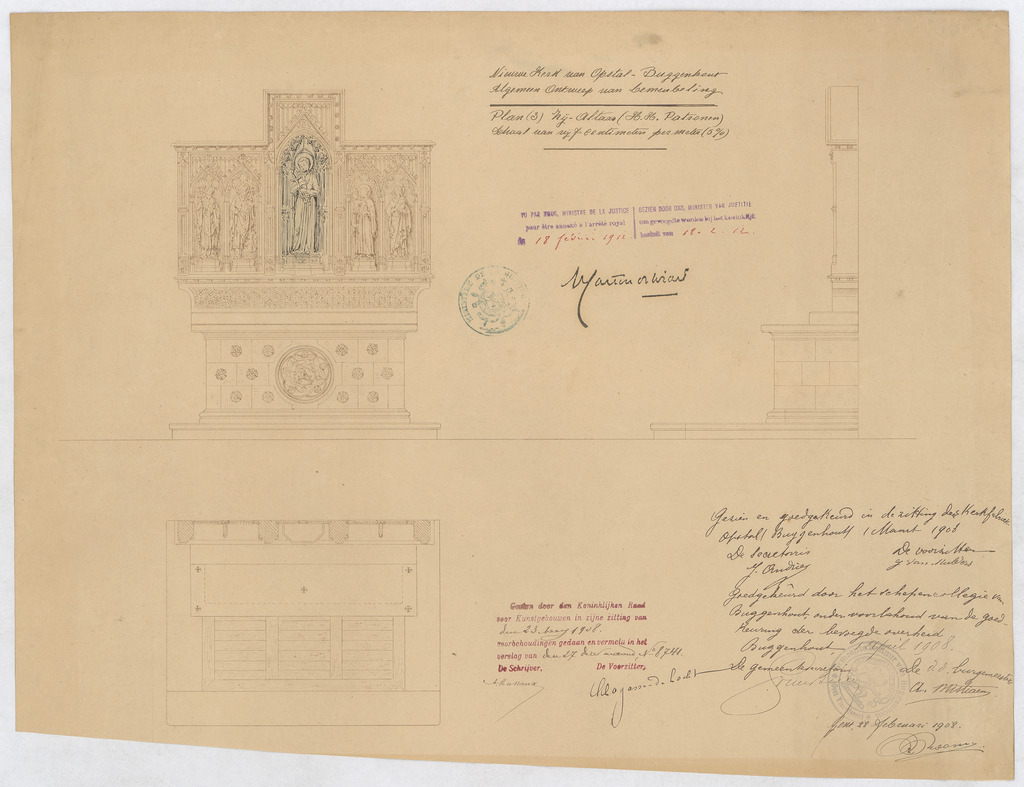 Nieuwe Kerk van Opstal-Buggenhout
Algemeen Ontwerp van bemeubeling
Plan (3) Zij-Altaar (H.H. Patronen)
Schaal van vijf centimeters per meter (5%)
VU PAR NOUS, MINISTRE DE LA JUSTICE
pour être annexé à l'arrêté royal
du 18 février 1912
GEZIEN DOOR ONS, MINISTER VAN JUSTITIE
om gevoegd te worden bij het koninklijk
besluit van 18-2-12.
MINISTÈRE DE
Gezien en goedgekeurd in de zitting der Kerkfabriek
Opstal (Buggenhout) 1 Maart 1908
De Secretaris
De voorzitter
J. Andries
Goedgekeurd door het schepencollegie van
Buggenhout, onder voorbehoud van de goed
keuring der bevoegde overheid.
Buggenhout, 1 april 1908.
De gemeentesecretaris
De burgemeester
Gent, 28 Februari 1908.
Gezien door den Koninklijken Raad
voor Kunstgebouwen in zijne zitting van
den 23 1908.
voorbehoudingen gedaan en vermeld in het
verslag van den 27 dezer maand, N° 8741.
De Schrijver,
De Voorzitter,